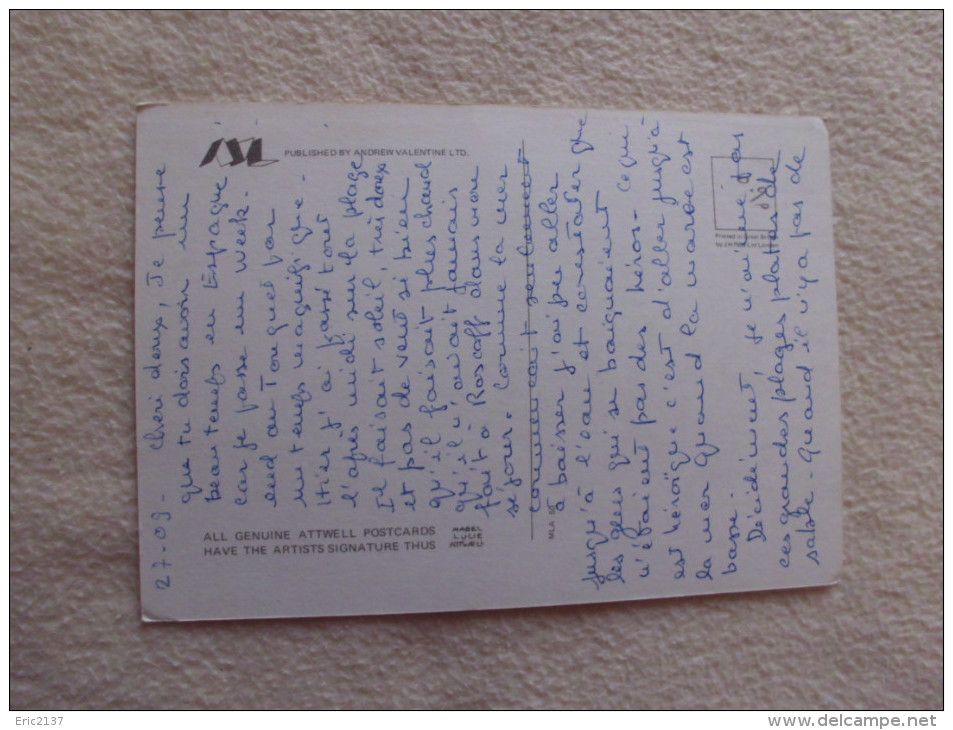 27-09- Cheri doux, Je pense
que tu dois avoir un
beau temps en Espagne
car je passe un week-
end au Touquet par
un temps magnifique.
Hier j'ai passé tout
l'après midi sur la plage
Il faisait soleil, très doux
et pas de vent si bien
qu'il faisait plus chaud
qu'il n'avait jamais
fait à Roscoff dans mon
séjour. Comme la mer
commençait seulement
à baisser j'ai pu aller
jusqu'à l'eau et constater que
les gens qui se baignaient
n'étaient pas des héros. Ce qui
est héroïque c'est d'aller jusqu'à
la mer quand la marée est
basse.
Décidément, je n'aime pas
ces grandes plages plates de
sable. Quand il n'y a pas de
PUBLISHED BY ANDREW VALENTINE LTD.
ALL GENUINE ATTWELL POSTCARDS
HAVE THE ARTISTS SIGNATURE THUS
MABEL
LUCIE
ATTWELL
MLA
Printed in Great
by J
Eric2137
www.delcampe.net